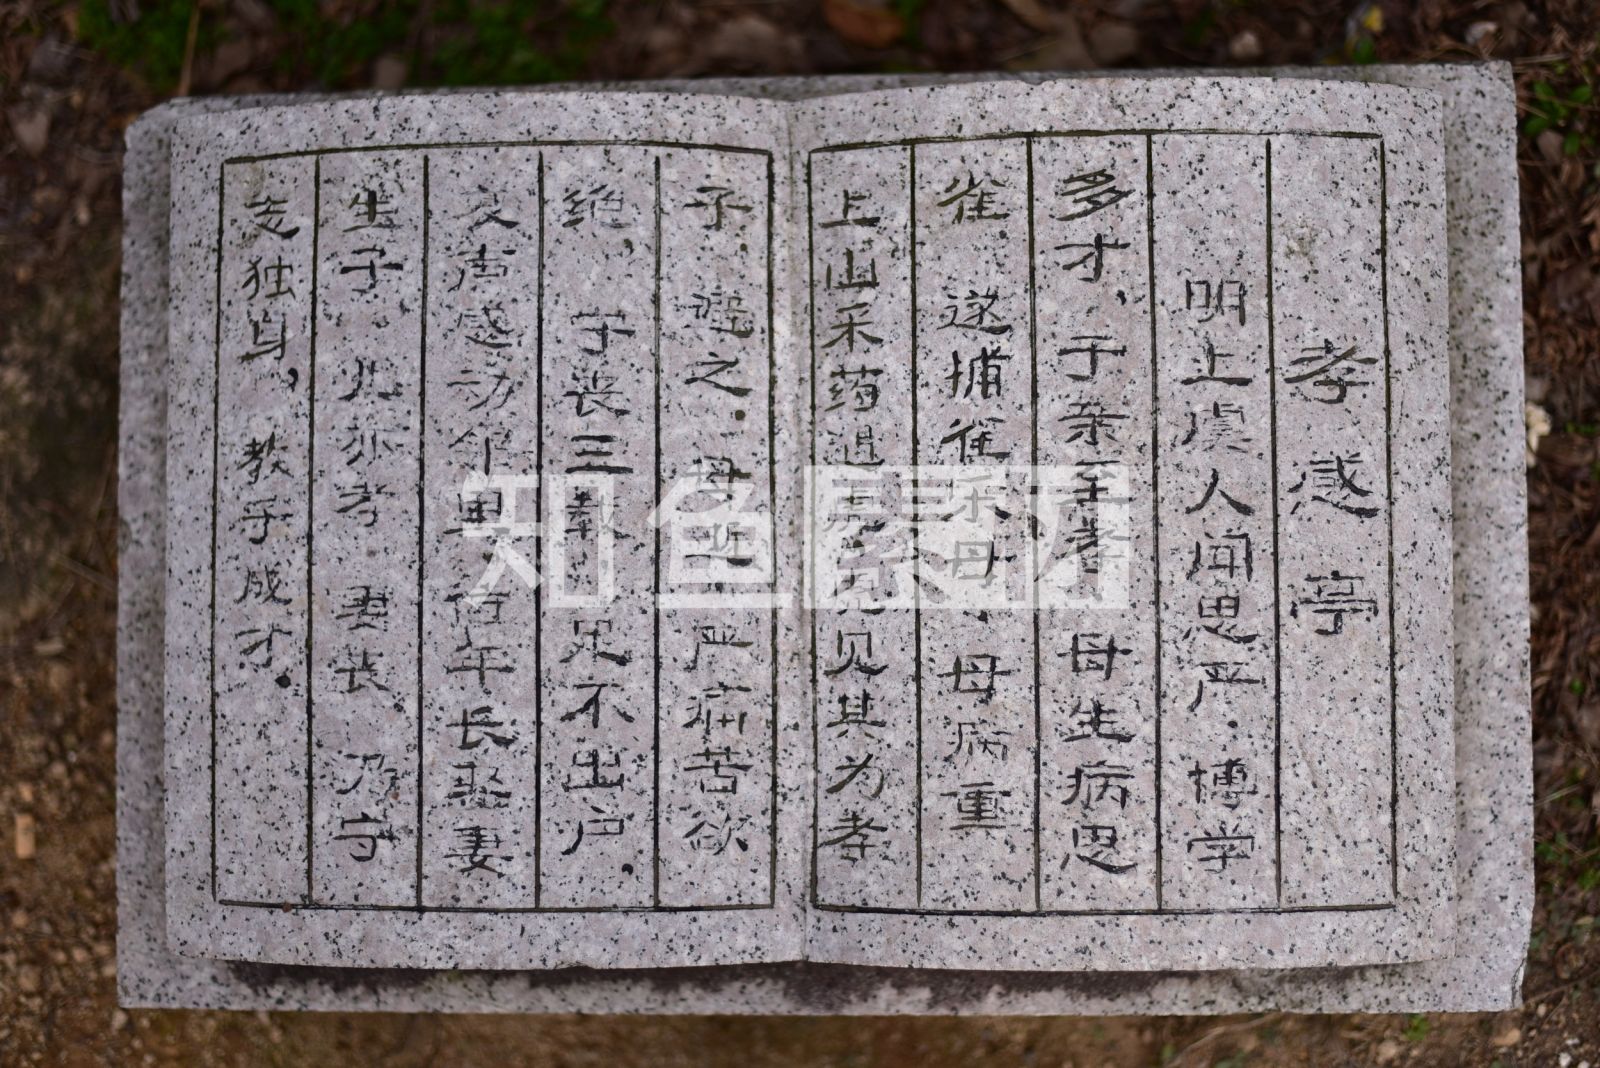 孝感亭
明上虞人闻思严.博学
多才、于亲至孝.母生病思
雀 遂捕雀乐母.母病重
上山采药遇虎.虎见其为孝
子.避之.母逝.严痛苦欲
绝, 守丧三载.足不出户.
哀声感动邻里.待年长娶妻
生子.儿亦孝 妻丧 乃守
志独身,教子成才.
知鱼素材